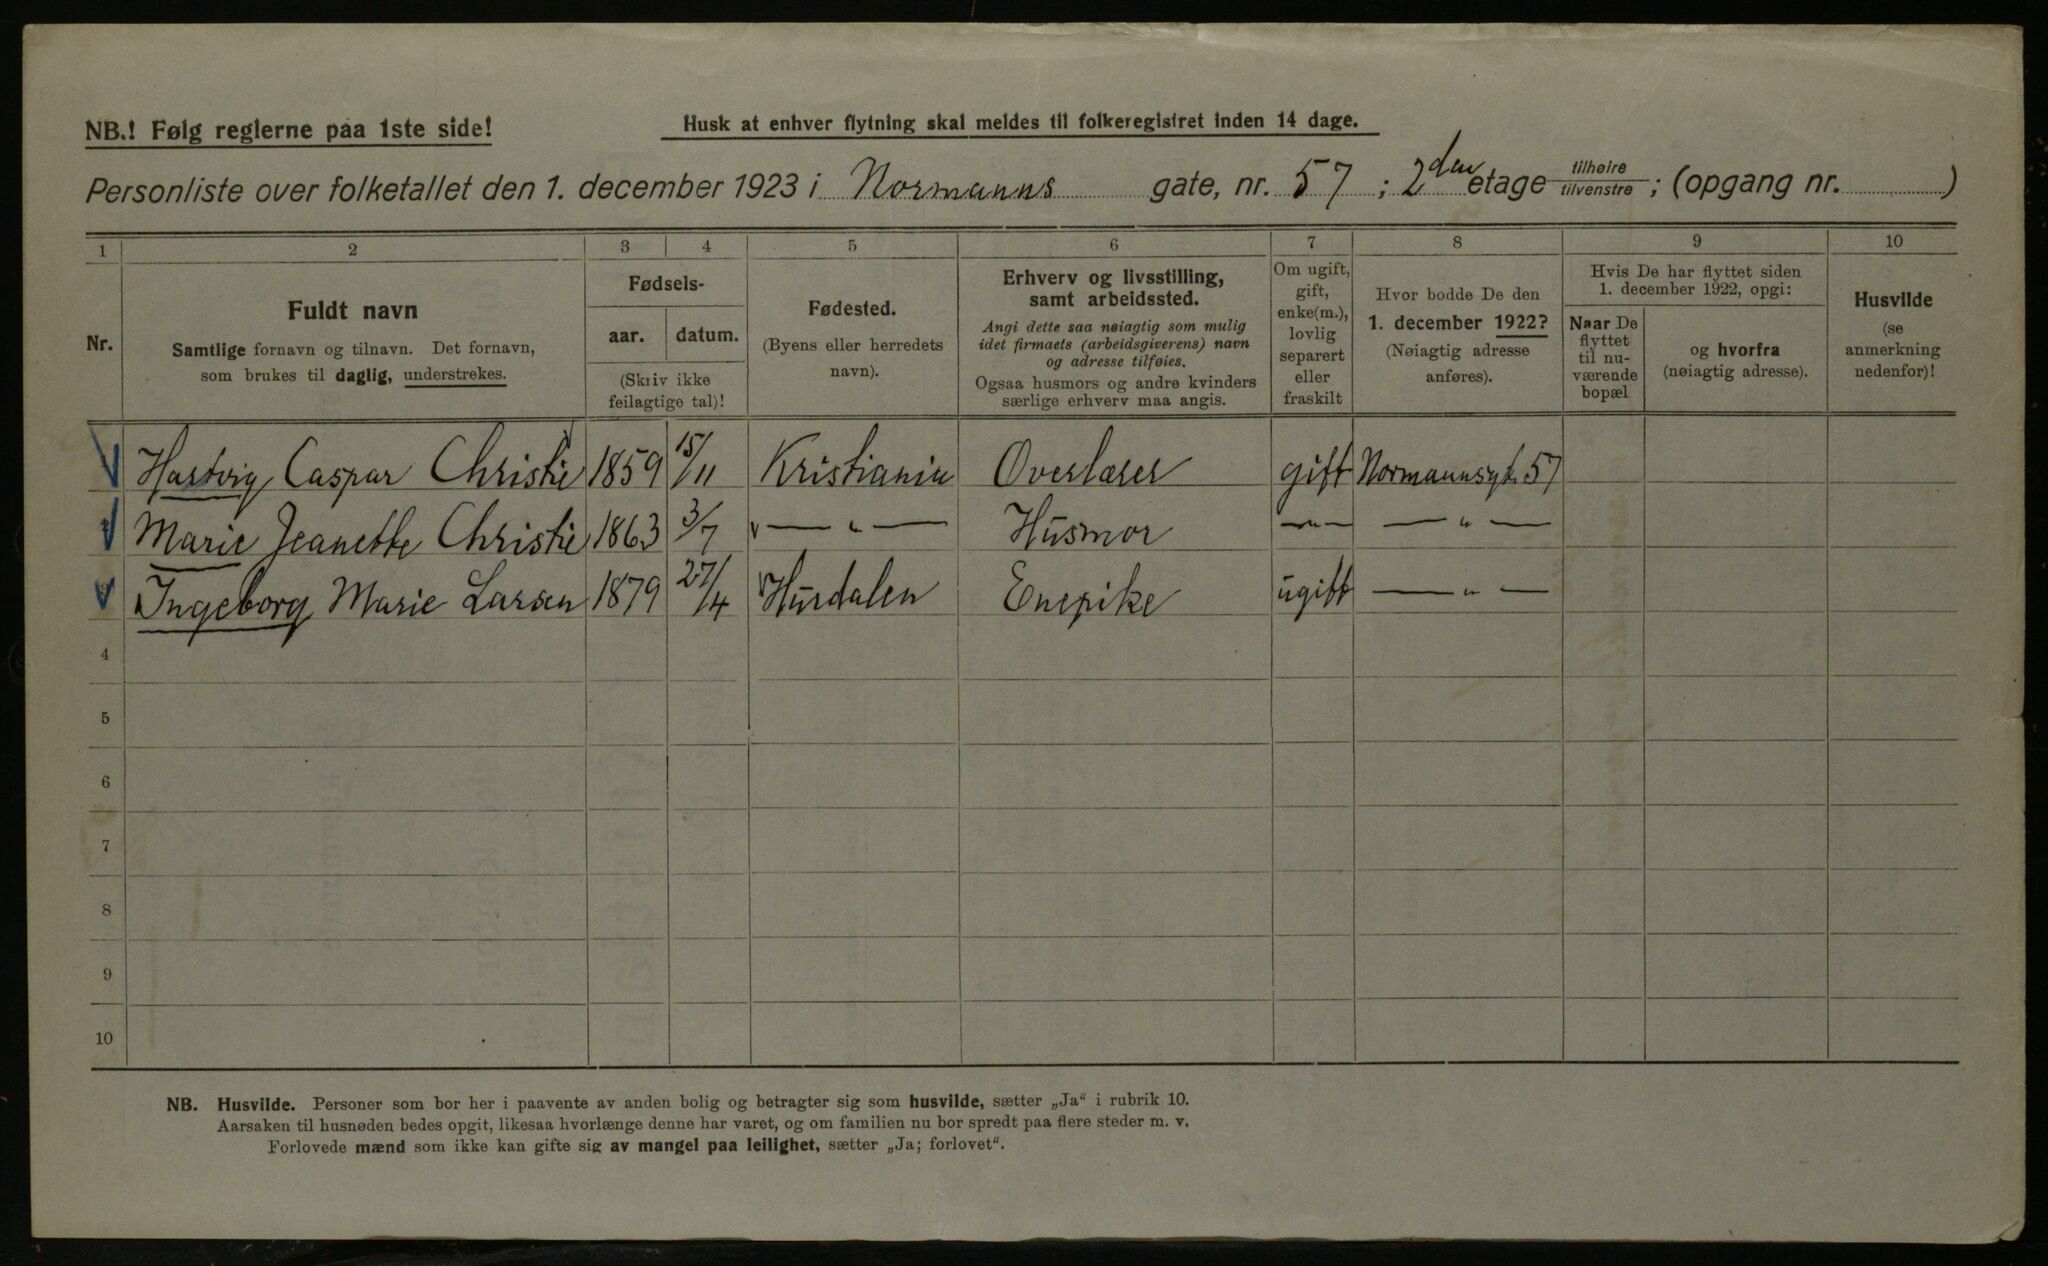 NB.! Følg reglerne paa 1ste side!
Husk at enhver flytning skal meldes til folkeregistret inden 14 dage.
Personliste over folketallet den 1. december 1923 i Normanns gate, nr. 57 ; 2den etage tilhøire tilvenstre ; (opgang nr. )
1 2 3 4 5 6 7 8 9 10
Nr.
Fuldt navn
Samtlige fornavn og tilnavn. Det fornavn,
som brukes til daglig, understrekes.
Fødsels-
aar. datum.
(Skriv ikke
feilagtige tal)!
Fødested.
(Byens eller herredets
navn).
Erhverv og livsstilling,
samt arbeidssted.
Angi dette saa nøiagtig som mulig
idet firmaets (arbeidsgiverens) navn
og adresse tilføies.
Ogsaa husmors og andre kvinders
særlige erhverv maa angis.
Om ugift,
gift,
enke(m.),
lovlig
separert
eller
fraskilt
Hvor bodde De den
1. december 1922?
(Nøiagtig adresse
anføres).
Hvis De har flyttet siden
1. december 1922, opgi:
Naar De
flyttet
til nu-
værende
bopæl
og hvorfra
(nøiagtig adresse).
Husvilde
(se
anmerkning
nedenfor)!
Hartvig Caspar Christie 1859 15/11 Kristiania Overlærer gift Normannsgt. 57
Marie Jeanette Christie 1863 3/7 — „ — Husmor — „ — — „ —
Ingeborg Marie Larsen 1879 27/4 Hurdalen Enepike ugift — „ —
4
5
6
7
8
9
10
NB. Husvilde. Personer som bor her i paavente av anden bolig og betragter sig som husvilde, sætter „Ja“ i rubrik 10.
Aarsaken til husnøden bedes opgit, likesaa hvorlænge denne har varet, og om familien nu bor spredt paa flere steder m. v.
Forlovede mænd som ikke kan gifte sig av mangel paa leilighet, sætter „Ja; forlovet“.